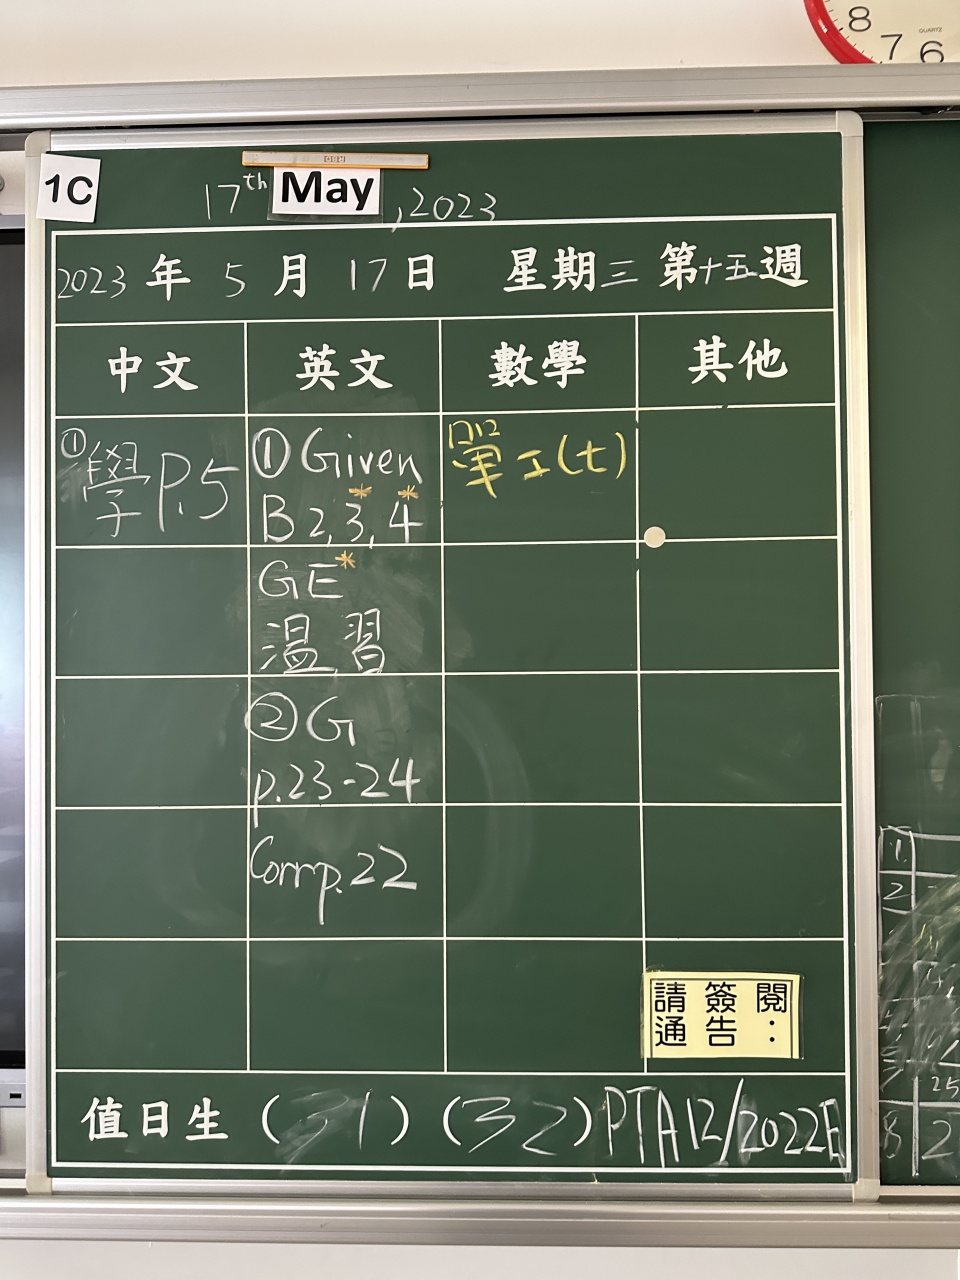 8
7
6
QUARTZ
1C
17th May, 2023
2023 年 5 月 17 日 星期三 第十五週
中文 英文 數學 其他
① 學 P.5
① Given
B 2, 3*, 4*
GE*
温習
② G
p.23-24
Comp.22
工(t)
請簽閱
通告：
值日生 (31) (32) PTA12/2022E
1.
2
25
8 2